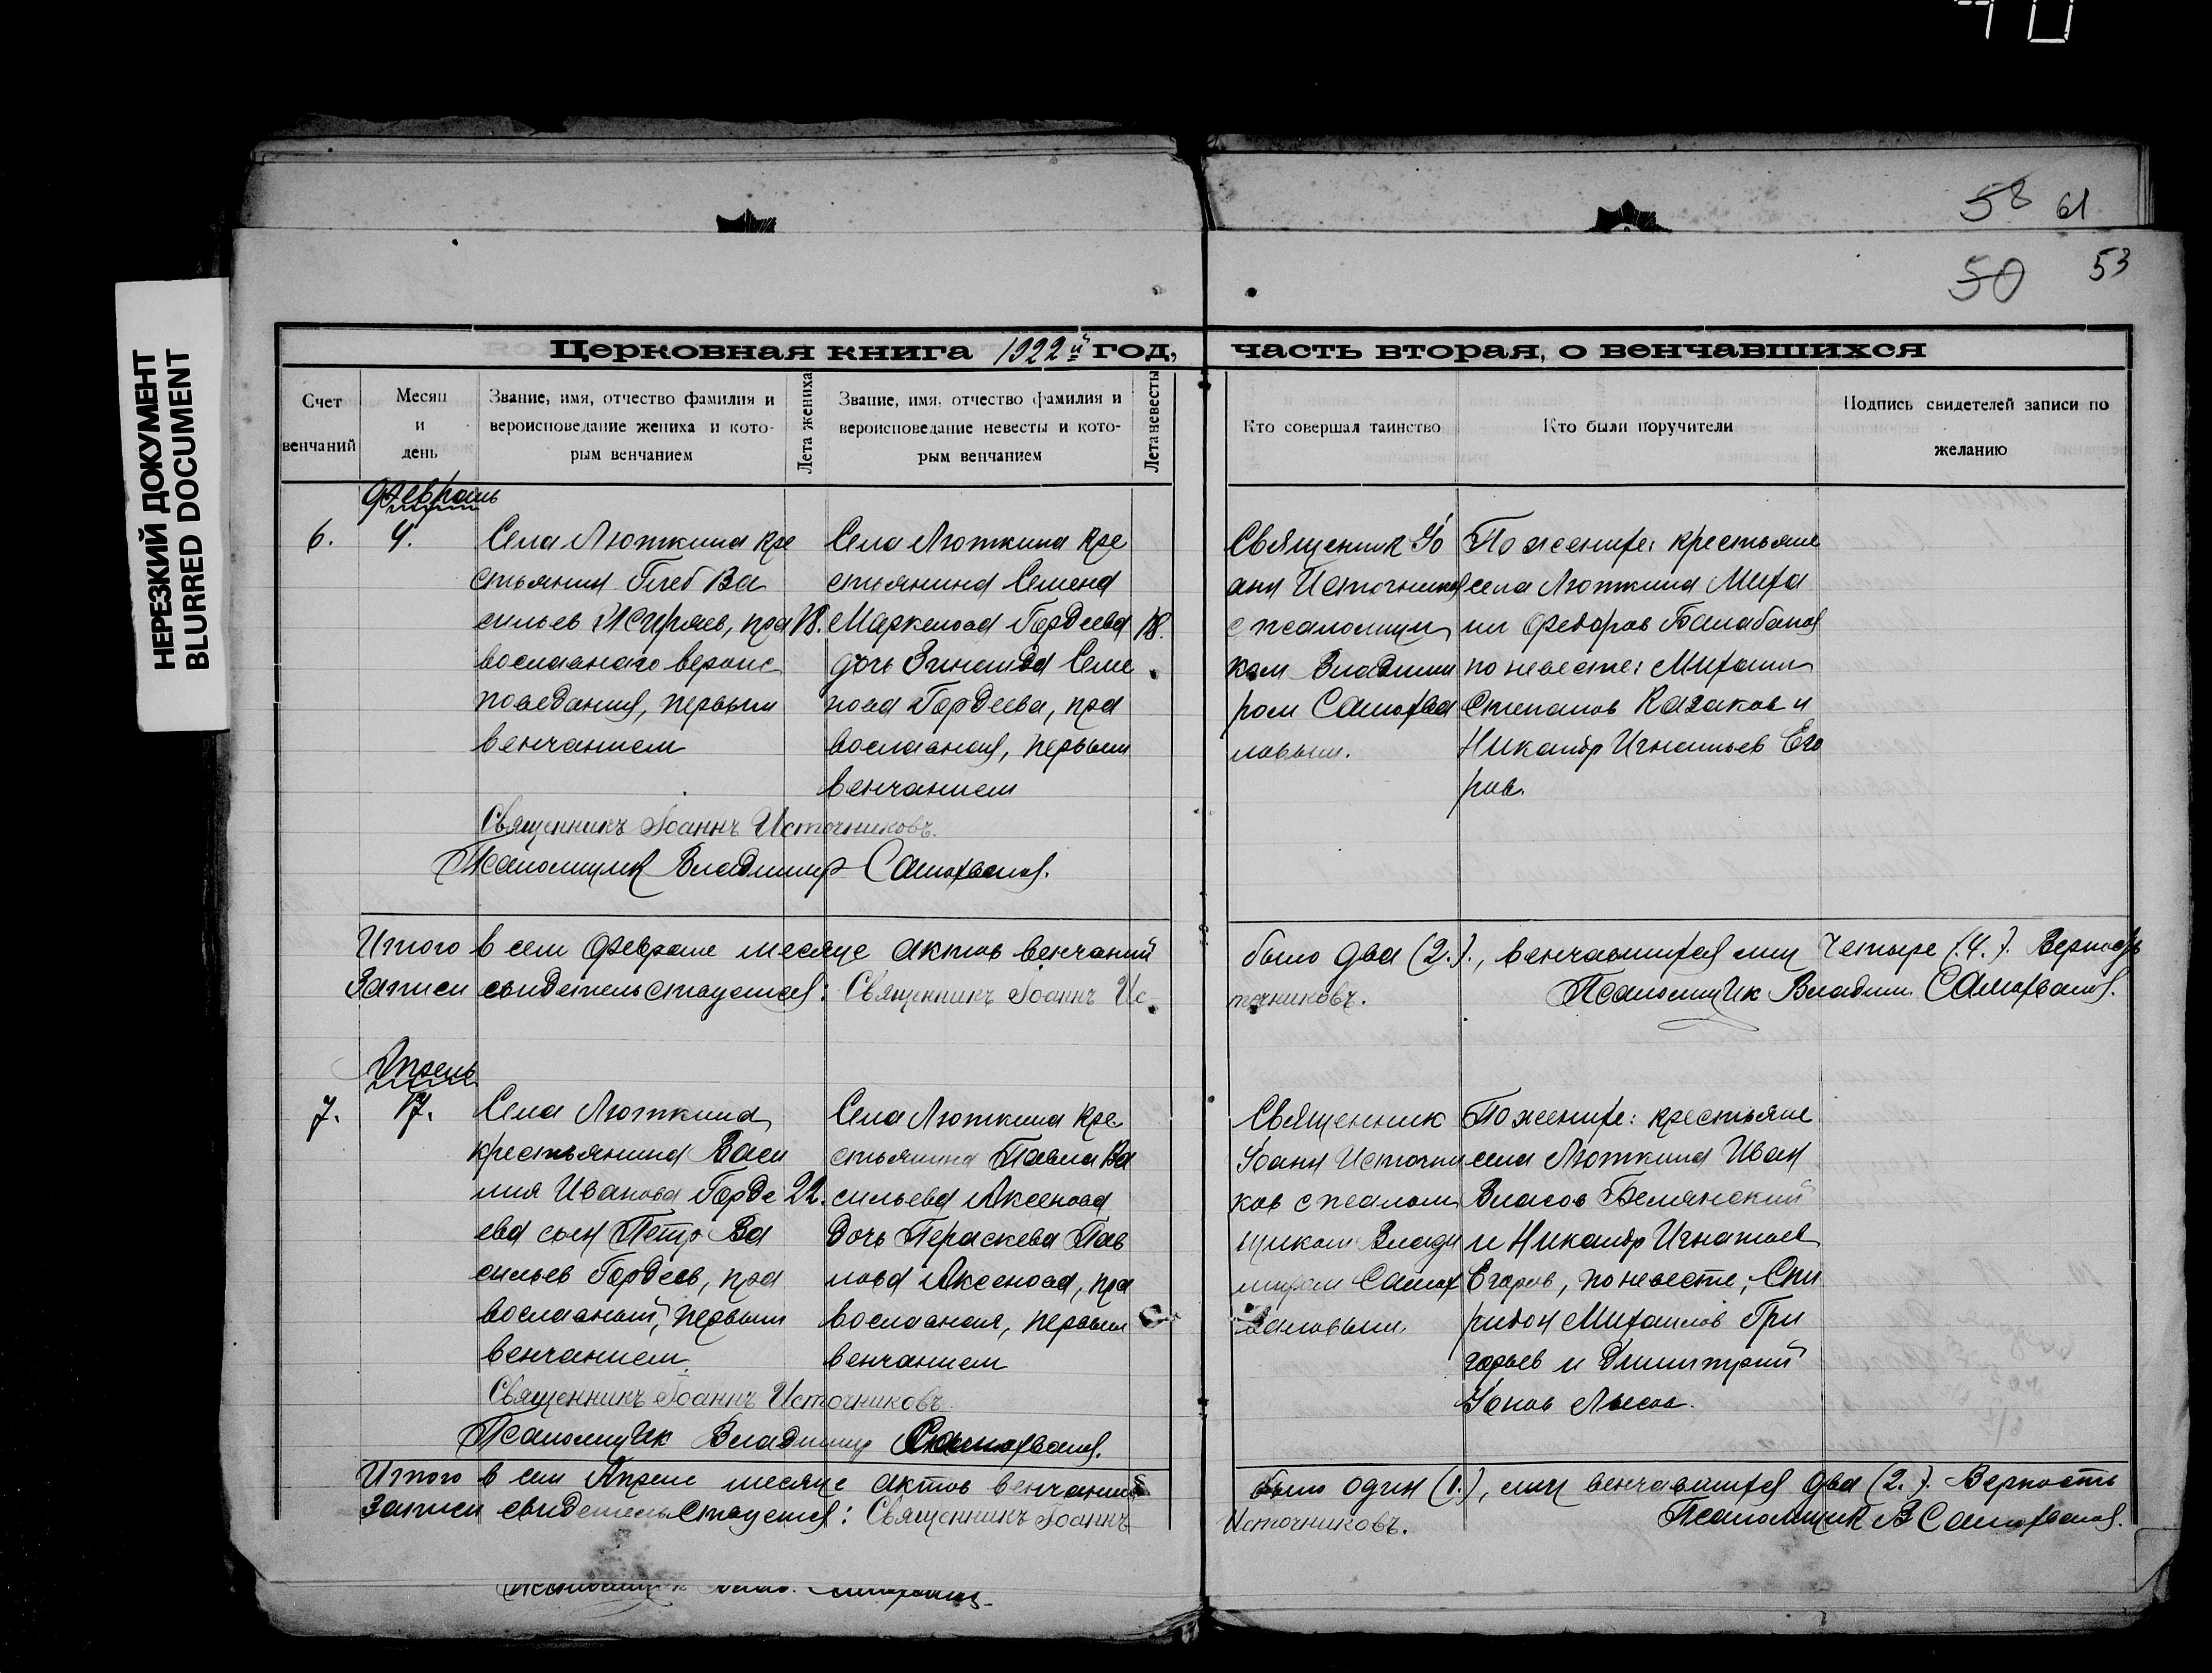 58 61
50 53
НЕРЕЗКИЙ ДОКУМЕНТ
BLURRED DOCUMENT
Церковная книга 1922й год, часть вторая, о венчавшихся
Счет венчаний
Месяц и день
Звание, имя, отчество фамилия и
вероисповедание жениха и кото-
рым венчанием
Лета жениха
Звание, имя, отчество фамилия и
вероисповедание невесты и кото-
рым венчанием
Лета невесты
Кто совершал таинство
Кто были поручители
Подпись свидетелей записи по
желанию
Февраль
6. 4.
Села Люткина кре
стьянин Глеб Ва
сильев Жиряев, пра
вославнаго вероис
поведания, первым
венчанием
18.
Села Люткина кре
стьянина Семена
Маркелова Гордеева
дочь Зинаида Семе
нова Гордеева, пра
вославная, первым
венчанием
18.
Священник Іо
анн Источников
с псаломщи
ком Владими
ром Самохва
ловым.
По женихе: крестьяне
села Люткина Миха
ил Федоров Балабанов
по невесте: Михаил
Степанов Казаков и
Никандр Игнатьев Его
ров.
Священникъ Іоаннъ Источниковъ.
Псаломщик Владимир Самохвалов.
Итого в сем Феврале месяце актов венчаний было два (2.)., венчавшихся лиц четыре (4.). Верность
Записи свидетельствуется: Священникъ Іоаннъ Источниковъ. Псаломщик Владим. Самохвалов.
Апрель
7. 17.
Села Люткина
крестьянина Васи
лия Иванова Горде
ева сын Петр Ва
сильев Гордеев, пра
вославный, первым
венчанием.
22.
Села Люткина кре
стьянина Павла Ва
сильева Аксенова
дочь Пераскева Пав
лова Аксенова, пра
вославная, первым
венчанием
Священник
Іоанн Источни
ков с псалом
щиком Влади
миром Самох
валовым.
По женихе: крестьяне
села Люткина Иван
Власов Белянский
и Никандр Игнатьев
Егоров, по невесте: Спи
ридон Михаилов Гри
горьев и Димитрий
Іонов Лысов.
Священникъ Іоаннъ Источниковъ
Псаломщик Владимир Самохвалов.
Итого в сем Апреле месяце актов венчаний было один (1.), лиц венчавшихся два (2.). Верность
Записи свидетельствуется: Священникъ Іоаннъ Источниковъ. Псаломщик В Самохвалов.